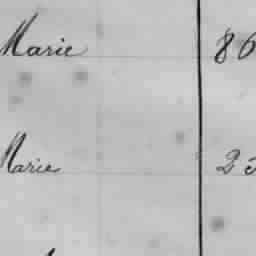 Marie 86
Marie 23